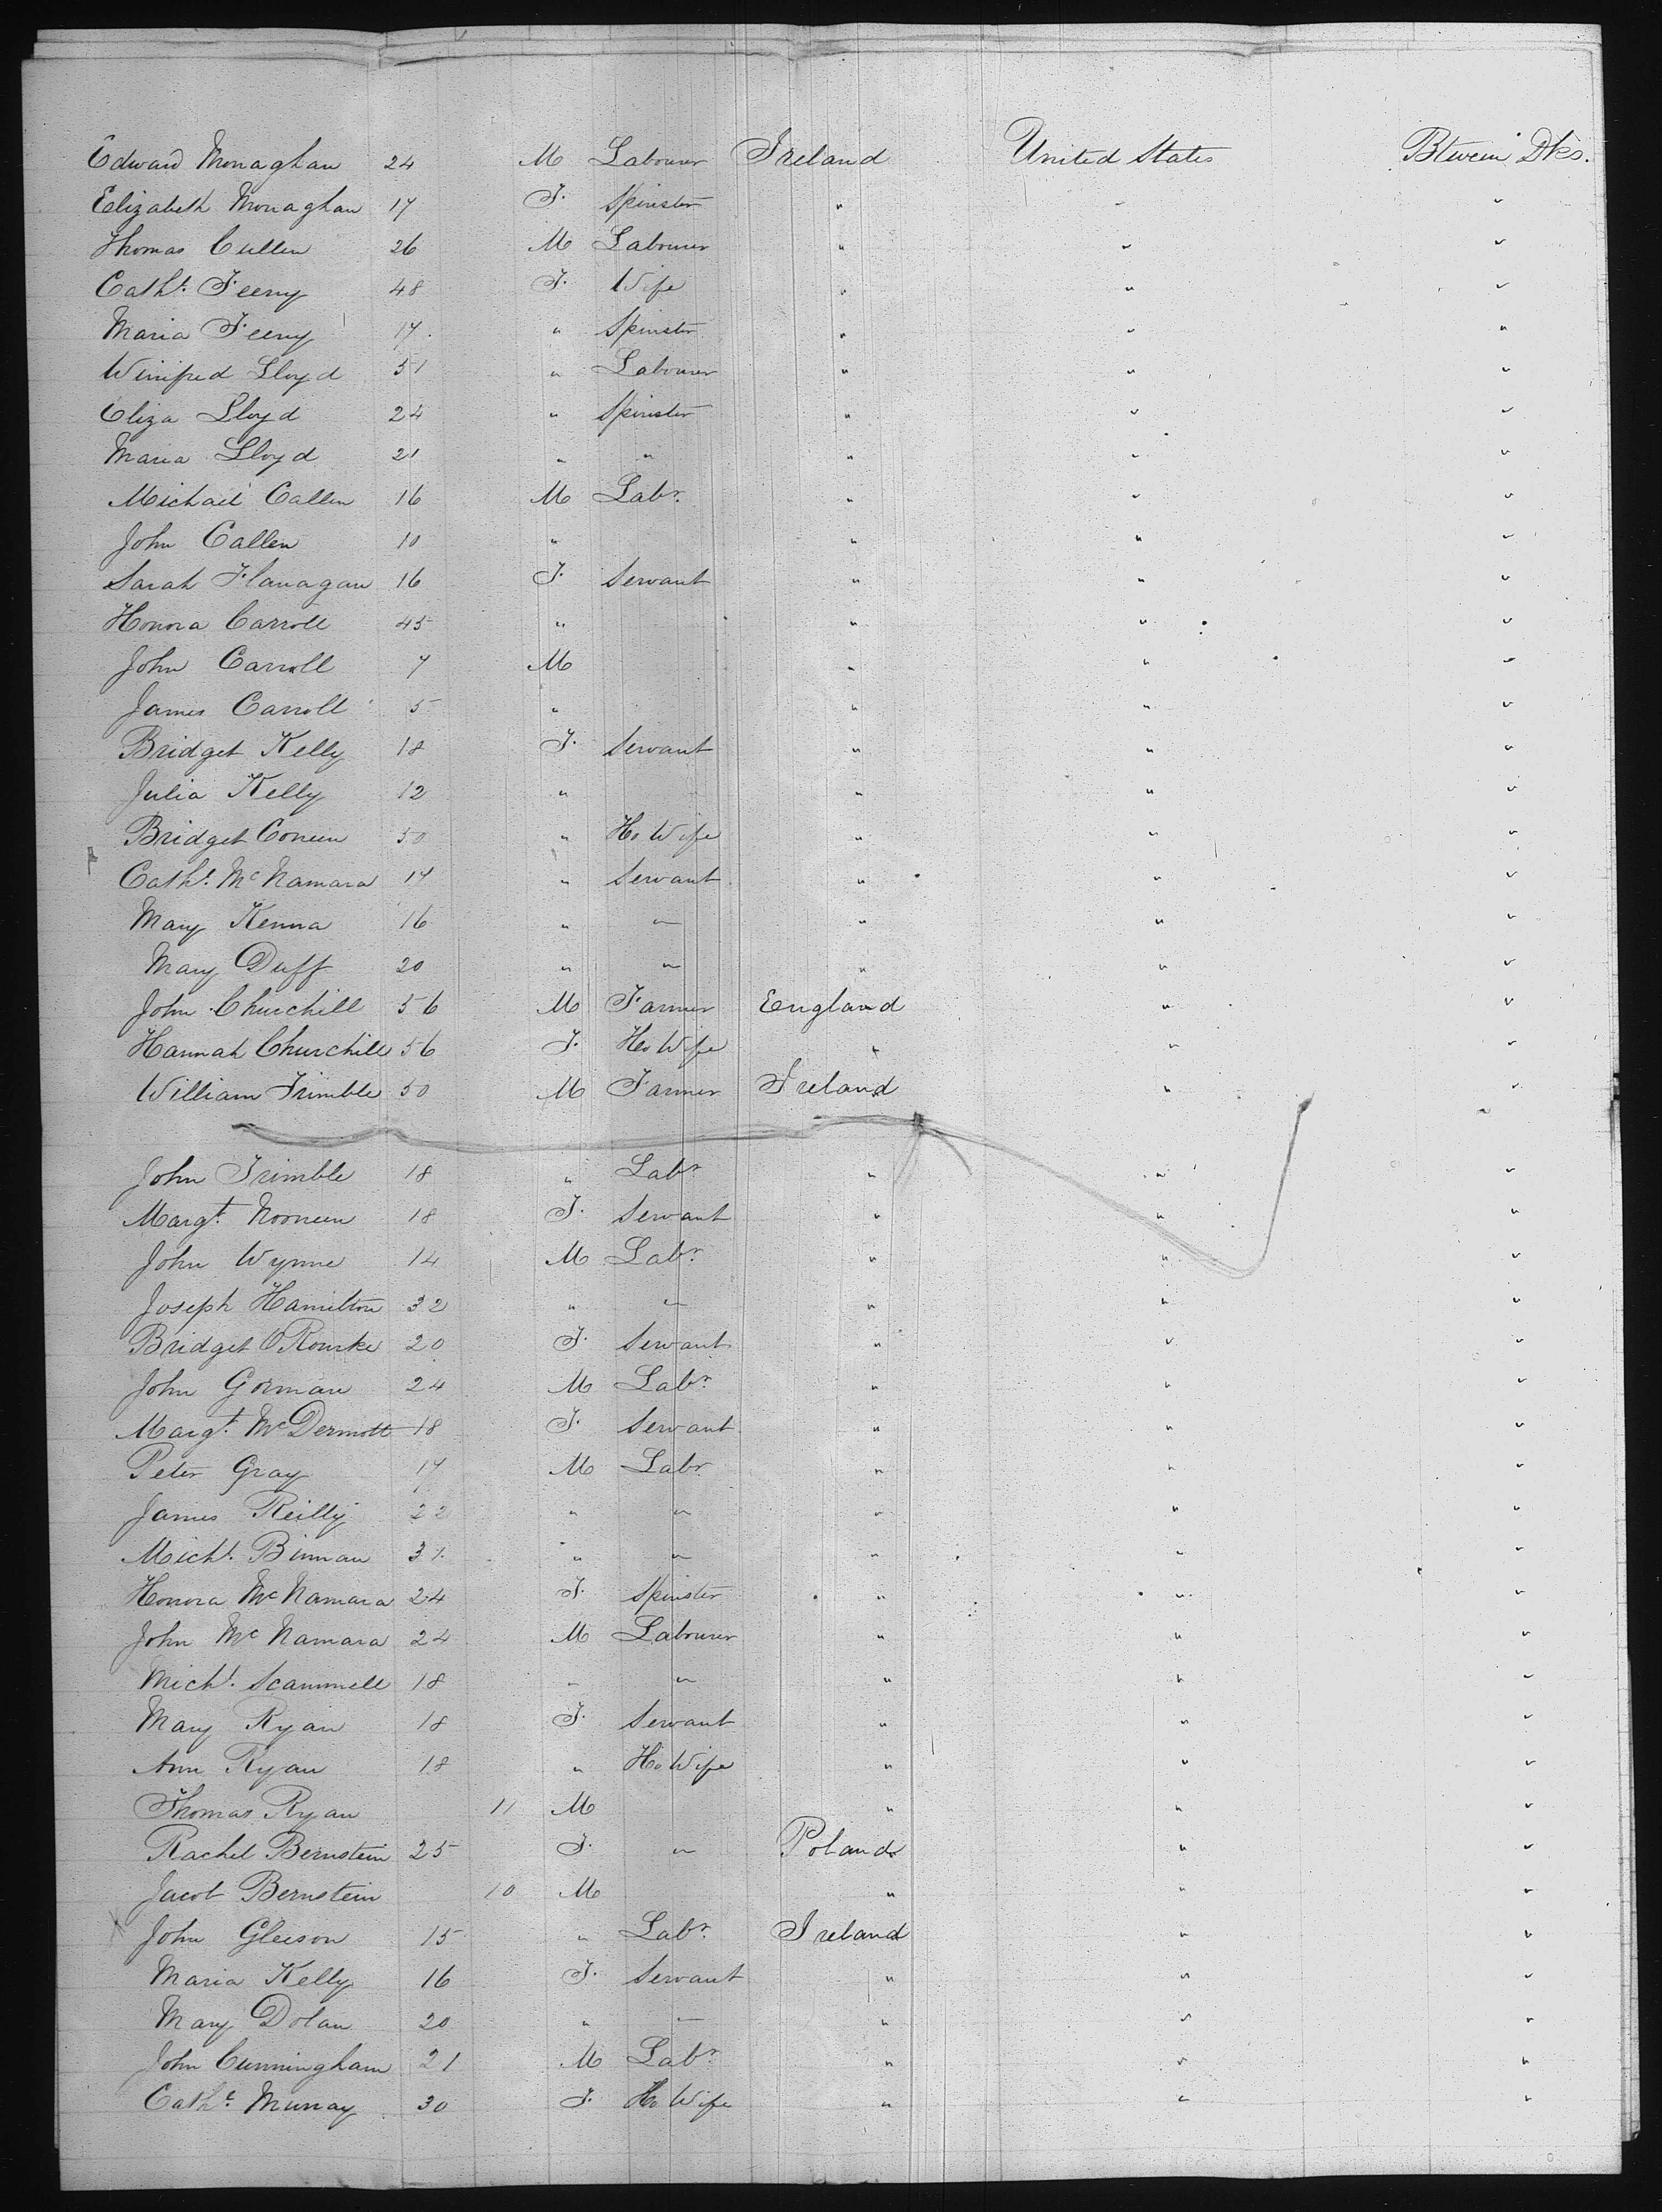 Edward Monaghan 24 M Labourer Ireland United States Btween Dks.
Elizabeth Monaghan 17 F. Spinster " " "
Thomas Cullen 26 M Labourer " " "
Cathe. Feeny 48 F. Wife " " "
Maria Feeny 17 " Spinster " " "
Winifred Lloyd 51 " Labourer " " "
Eliza Lloyd 24 " Spinster " " "
Maria Lloyd 21 " " " " "
Michael Callen 16 M Labr. " " "
John Callen 10 " " " "
Sarah Flanagan 16 F. Servant " " "
Honora Carroll 45 " " " "
John Carroll 7 M " " "
James Carroll 5 " " " "
Bridget Kelly 18 F. Servant " " "
Julia Kelly 12 " " " "
Bridget Coneen 50 " Ho Wife " " "
Cathe. McNamara 17 " Servant " " "
Mary Kenna 16 " " " " "
Mary Duff 20 " " " " "
John Churchill 56 M Farmer England " "
Hannah Churchill 56 F. Ho Wife " " "
William Trimble 50 M Farmer Ireland " "
John Trimble 18 " Labr " " "
Margt. Nooneen 18 F. Servant " " "
John Wynne 14 M Labr. " " "
Joseph Hamilton 32 " " " " "
Bridget O'Rourke 20 F. Servant " " "
John Gorman 24 M Labr. " " "
Margt. McDermott 18 F. Servant " " "
Peter Gray 17 M Labr " " "
James Reilly 22 " " " " "
Michl. Binman 31 " " " " "
Honora McNamara 24 F. Spinster " " "
John McNamara 24 M Labourer " " "
Michl. Scammell 18 " " " " "
Mary Ryan 18 F. Servant " " "
Ann Ryan 18 " Ho Wife " " "
Thomas Ryan 11 M " " "
Rachel Bernstein 25 F. " Poland " "
Jacob Bernstein 10 M " " "
John Gleeson 15 " Labr. Ireland " "
Maria Kelly 16 F. Servant " " "
Mary Dolan 20 " " " " "
John Cunningham 21 M Labr. " " "
Cathe. Murray 30 F. Ho Wife " " "